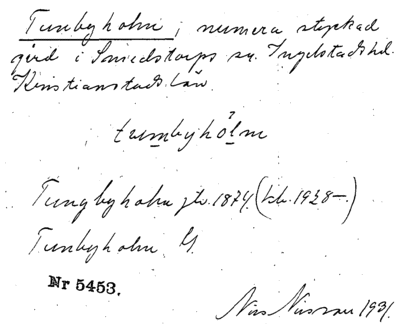 Tunbyholm, numera styckad
gård i Smedstorps sn. Ingelstads hd.
Kristianstads län.
tumbyhòlm
Tungbyholm jb. 1874 (kb. 1928–)
Tunbyholm G.
Nr 5453.
Nils Nilsson 1931.